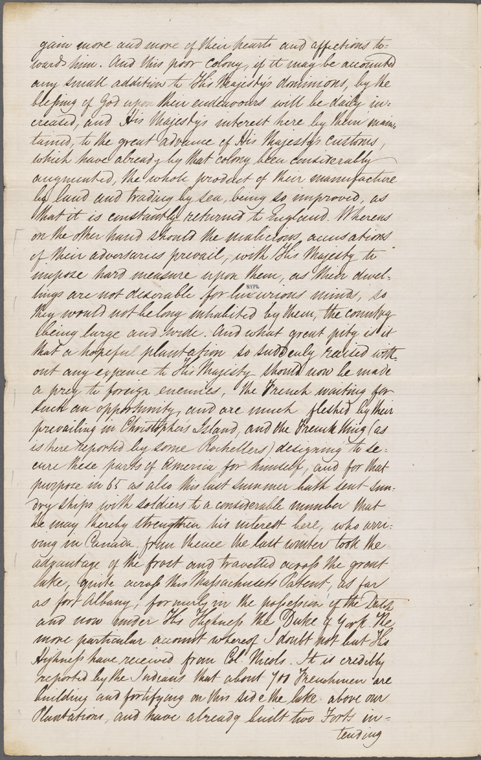 gain more and more of their hearts and affections to-
wards him. And this poor colony, if it may be accounted
any small addition to His Majesty's dominions, by the
blessing of God upon their endeavours will be daily in-
creased, and His Majesty's interest here by them main-
tained, to the great advance of His Majesty's customs,
which have already by that colony been considerably
augmented, the whole product of their manufacture
by land and trading by sea, being so improved, as
that it is constantly returned to England. Whereas
on the other hand should the malicious accusations
of their adversaries prevail, with His Majesty to
impose hard measure upon them, as their dwel-
lings are not desirable for luxurious minds, so
they would not be long inhabited by them, the country
being large and wide. And what great pity is it
that a hopeful plantation so suddenly raised with-
out any expence to His Majesty should now be made
a prey to foreign enemies, the French waiting for
such an opportunity, and are much fleshed by their
prevailing in Christophers Island, and the French King (as
is here reported by some Rochellers) designing to se-
cure these parts of America for himself, and for that
purpose in 65 as also this last summer hath sent sun-
dry ships with soldiers to a considerable number that
he may thereby strengthen his interest here, who arri-
ving in Canada from thence the last winter took the
advantage of the frost and travelled across the great
lake, quite across this Massachusets Patent, as far
as fort Albany, formerly in the possession of the Dutch
and now under His Highness the Duke of York. The
more particular account whereof I doubt not but His
Highness have received from Col. Nicols. It is credibly
reported by the Indians that about 700 Frenchmen are
building and fortifying on this side the lake above our
Plantations, and have already built two Forts in-
tending
NYPL